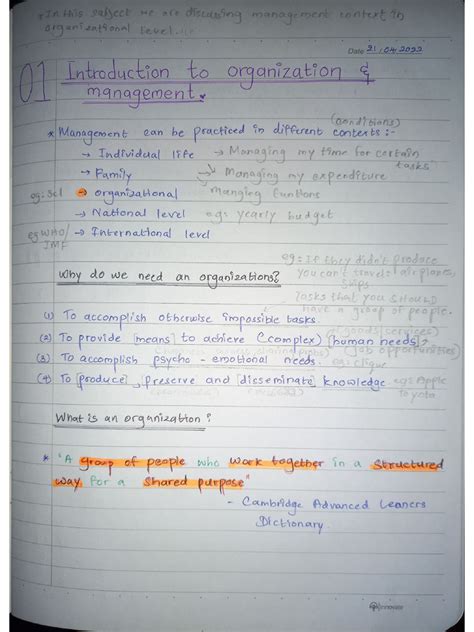 * In this subject we are discussing management context in
organizational level...
Date 21/04/2022
01 Introduction to organization &
management.
(conditions)
* Management can be practiced in different contexts :-
→ Individual life → Managing my time for certain
tasks
→ Family → Managing my expenditure
→ organizational
→ National level eg: yearly budget
eg WHO/ → International level
IMF
eg: If they didn't produce
you can't travel: airplanes,
ships
Why do we need an organizations?
Tasks that you should
have a group of people.
(1) To accomplish otherwise impossible tasks.
(goods/services)
(2) To provide [means] to achieve (complex) [human needs]
(job opportunities)
(3) To accomplish psycho - emotional needs.
(4) To [produce], preserve and [disseminate] knowledge. eg: Apple
Toyota
What is an organization?
* "A group of people who work together in a structured
way for a shared purpose"
- Cambridge Advanced Leaners
Dictionary.